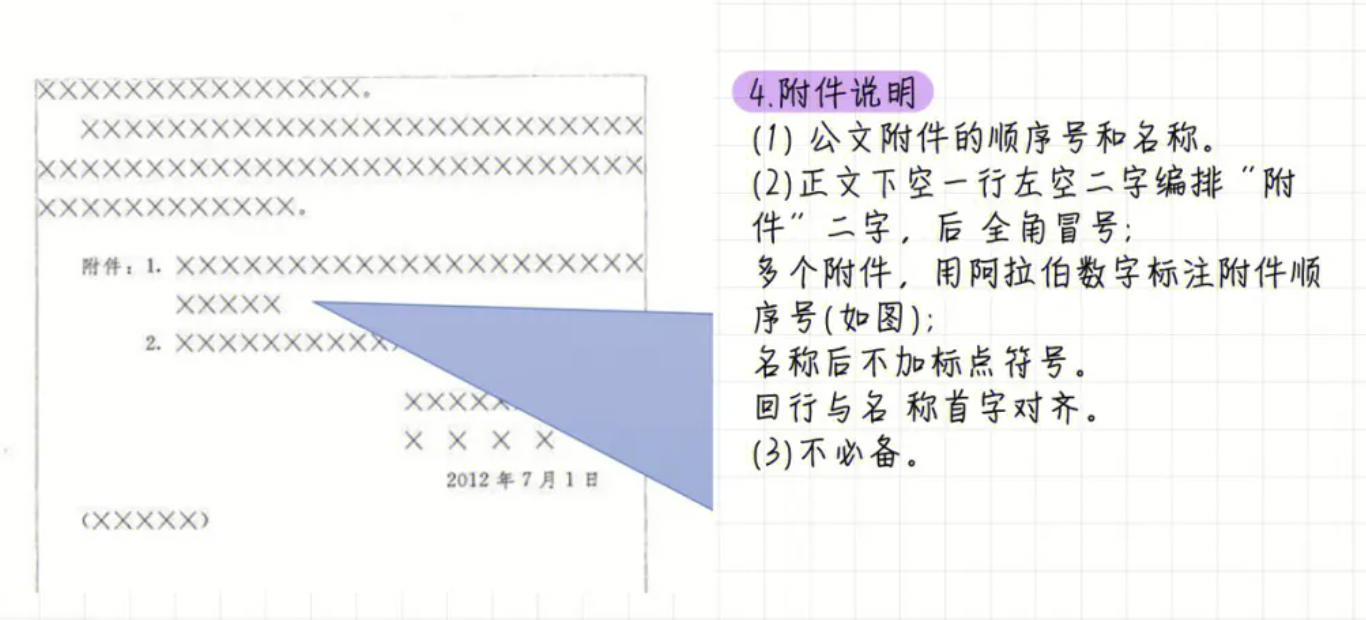 ×××××××××××××××。
××××××××××××××××××××××××××
××××××××××××××××××××××××××××
××××××××××××。
附件：1. ×××××××××××××××××××××
×××××
2. ××××××××××
×××××
× × × ×
2012年7月1日
(×××××)
4.附件说明
(1) 公文附件的顺序号和名称。
(2)正文下空一行左空二字编排“附
件”二字，后 全角冒号;
多个附件，用阿拉伯数字标注附件顺
序号(如图);
名称后不加标点符号。
回行与名 称首字对齐。
(3)不必备。